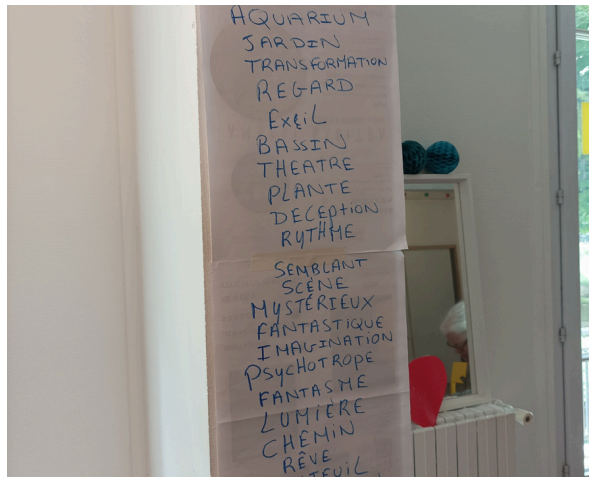 AQUARIUM
JARDIN
TRANSFORMATION
REGARD
EXEiL
BASSIN
THEATRE
PLANTE
DECEPtiON
RYTHME
SEMBLANT
SCÈNE
MySTÉRIEUX
FANTASTiQUE
IMAGINATION
PsycHOTROPE
FANTASME
LUMIÈRE
CHEMIN
RÊVE